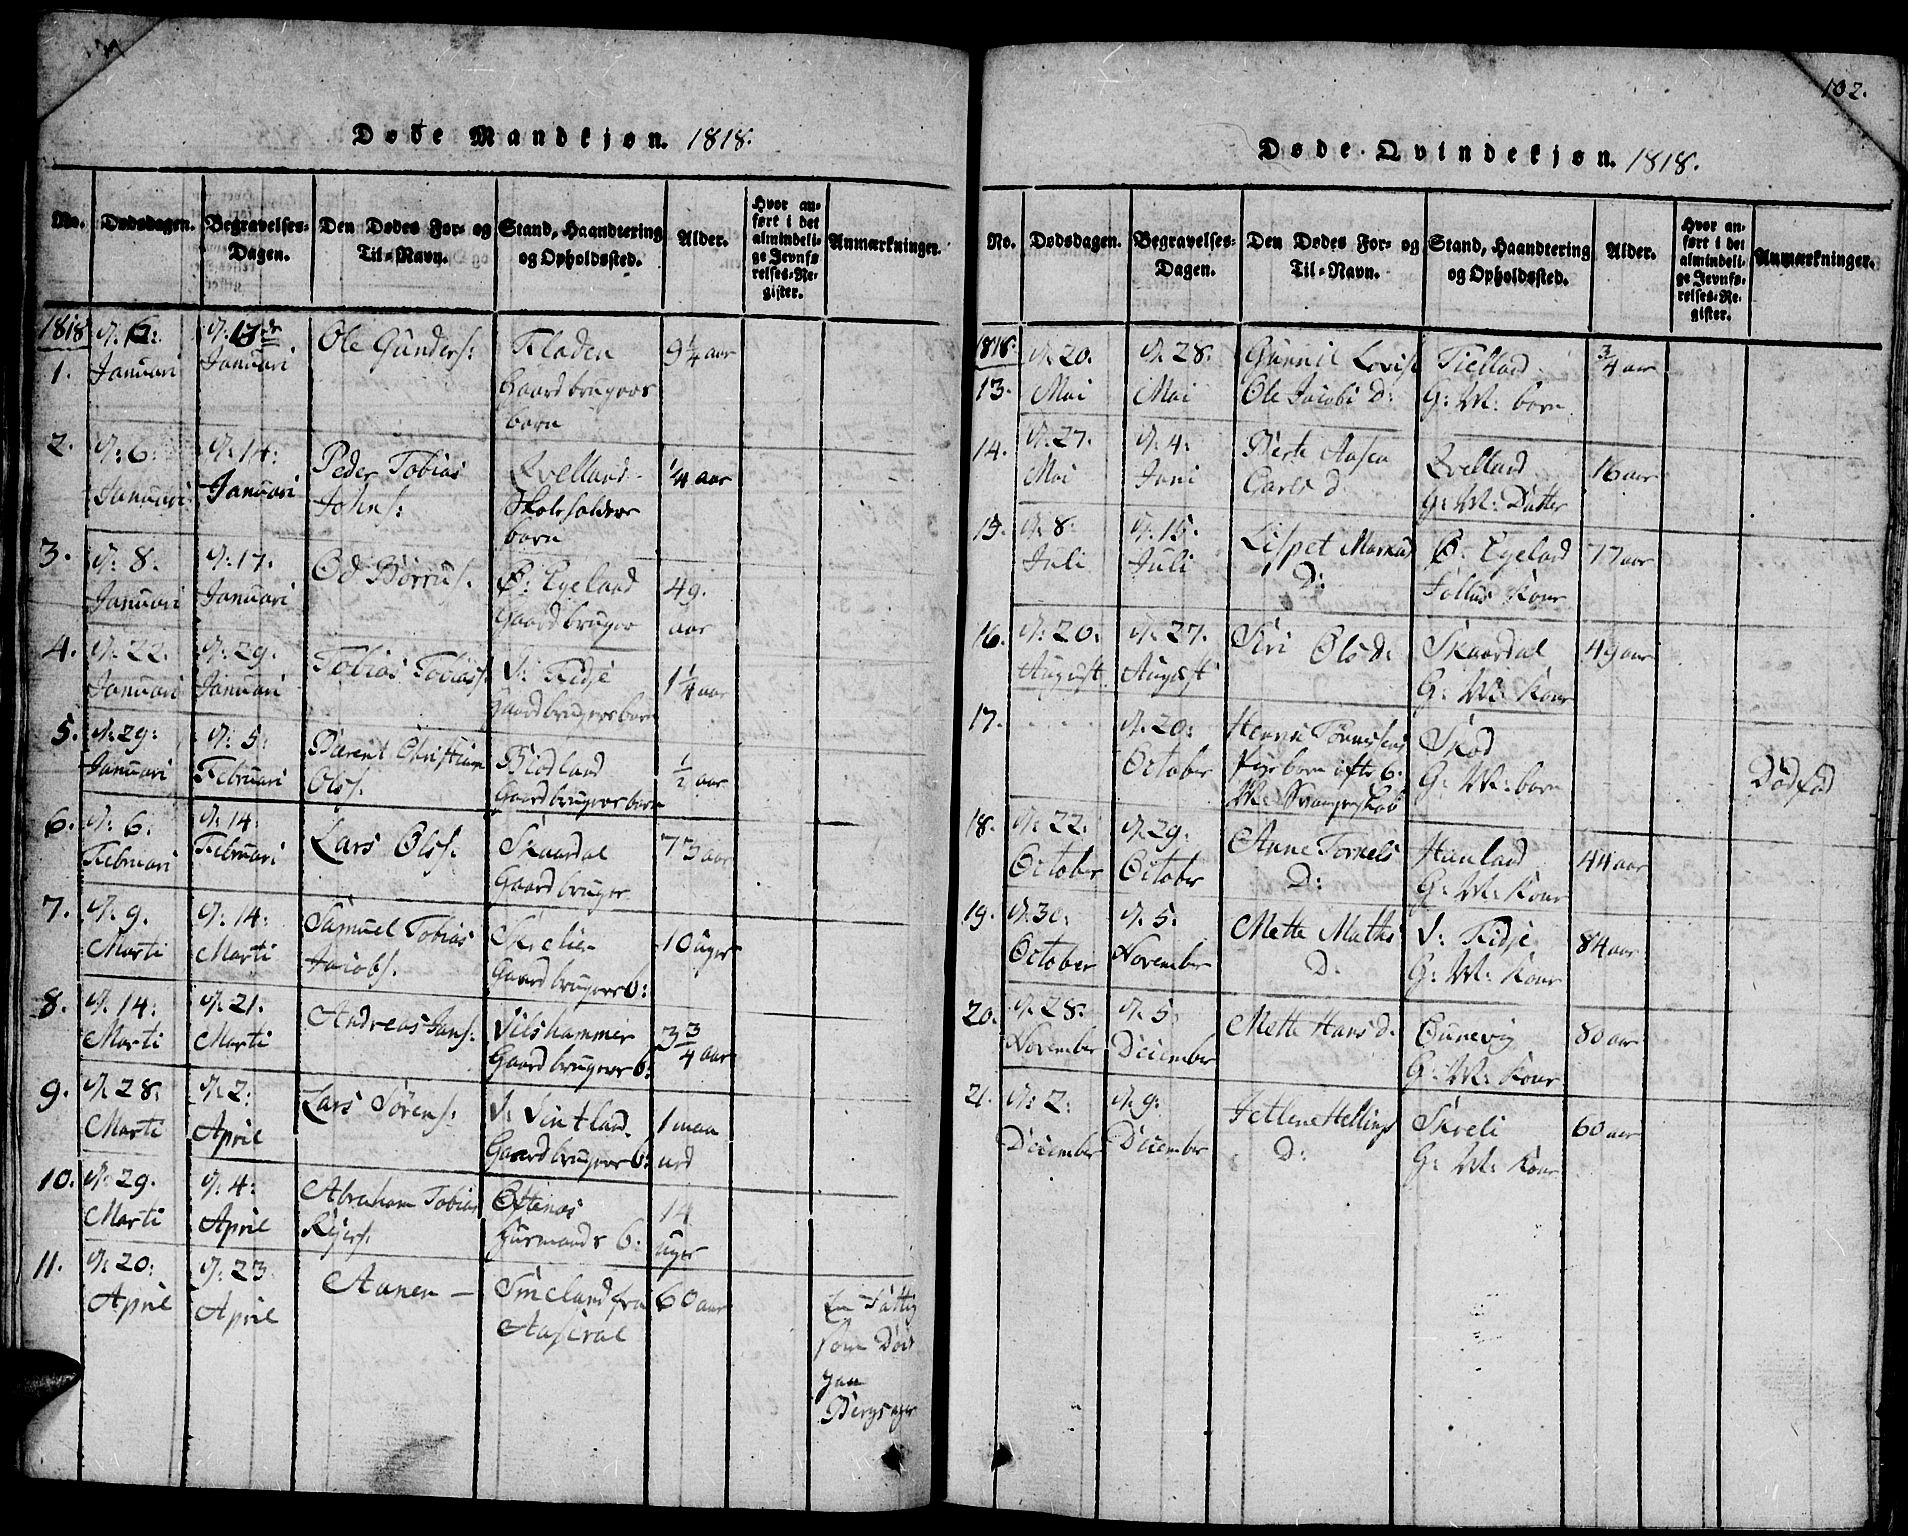 Døde Mandkjøn. 1818.
No. Dødsdagen. Begravelses-Dagen. Den Dødes For- og Til-Navn. Stand, Haandtering og Opholdssted. Alder. Hvor anført i det almindelige Jevnførelses-Register. Anmærkninger.
1818
1. d: 6: Januari d: 13de Januari Ole Gunders: Fladen Gaardbrugers barn 9 1/4 aar
2. d: 6: Januari d: 14: Januari Peder Tobias Johns: Qvelland Skoleholders barn 1/4 aar
3. d: 8: Januari d: 17. Januari Od Børrus: Ø: Egeland Gaardbruger 49. aar
4. d: 22. Januari d: 29. Januari Tobias Tobias: I: Fidje Gaardbrugers barn 1 1/4 aar
5. d: 29: Januari d: 5: Februari Barent Christian Ols: Birdland Gaardbrugers barn 1/2 aar
6. d: 6: Februari d: 14: Februari Lars Ols: Skaardal Gaardbruger 73 aar
7. d: 9. Marti d: 14: Marti Samuel Tobias Jacobs: Gaardbrugers b: 10 uger
8. d: 14: Marti d: 21. Marti Andreas Jans: Vilshammer Gaardbrugers b: 3 3/4 aar
9. d: 28: Marti d: 2: April Lars Sørens: Gaardbrugers b: 1 maaned
10. d: 29. Marti d: 4: April Abraham Tobias Rejers: Øftenæs Huusmands b: 14 uger
11. d: 20: April d: 23. April Aanen — Smeland fra Aaseral 60 aar En Fattig som Døde paa Bergsager
102.
Døde Qvindekjøn. 1818.
No. Dødsdagen. Begravelses-Dagen. Den Dødes For- og Til-Navn. Stand, Haandtering og Opholdssted. Alder. Hvor anført i det almindelige Jevnførelses-Register. Anmærkninger.
1818
13. d: 20. Mai d: 28: Mai Gunnil Lovise Ole Jacobs D: Fielland G: M: barn 3/4 aar
14. d: 27. Mai d: 4: Juni Berte Aasea Carls d: Qvelland G: M: Datter 16 aar
15. d: 8: Juli d: 15: Juli Lispet Markus D: Ø: Egeland Kone 77 aar
16. d: 20: August d: 27. August Siri Ols D: Skaardal G: M: Kone 49 aar
17. . . . d: 20: October Henric Tønnesens Pigebarn efter 6: M: Svangerskab Skod G: M: barn Dødfød
18. d: 22: October d: 29: October Anne Tornels D: Hauland G: M: Kone 44 aar
19. d: 30: October d: 5: November Mette Maths D: I: Fidje G: M: Kone 84 aar
20. d: 28: November d: 5: December Mette Hans d: Øunevig G: M: Kone 80 aar
21. d: 2: December d: 9: December Jetlene Hellings D: Skreli G: M: Kone 60 aar